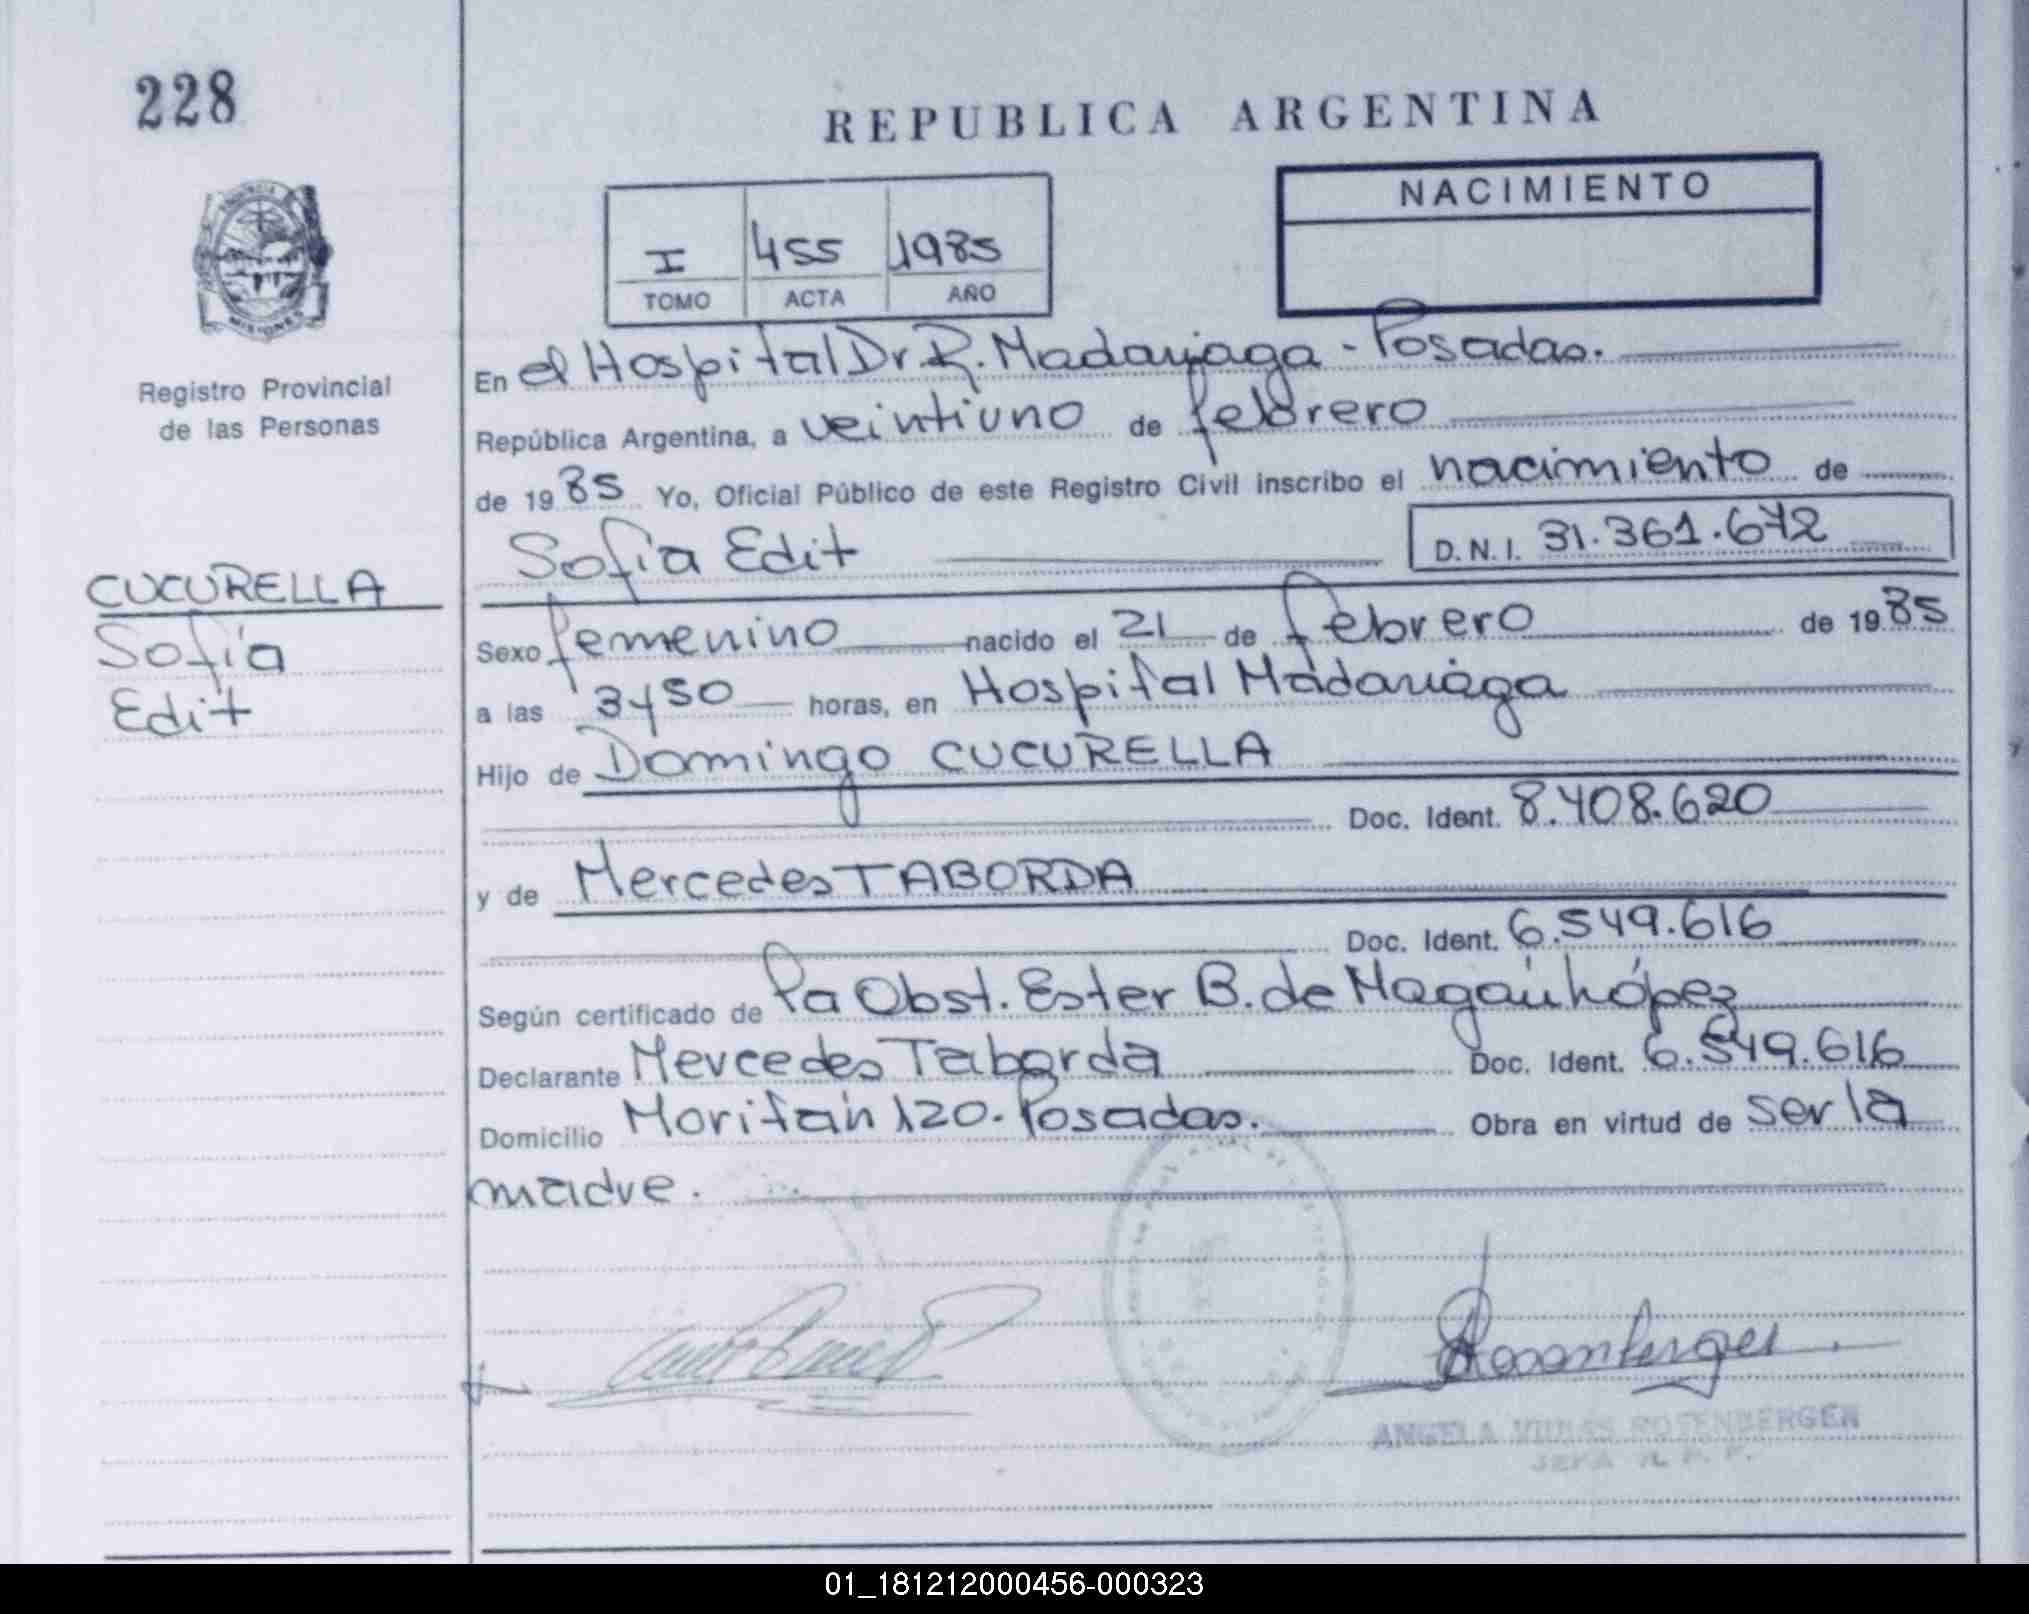 228
REPUBLICA ARGENTINA
NACIMIENTO
I 455 1985
TOMO ACTA AÑO
MISIONES
Registro Provincial
de las Personas
CUCURELLA
Sofía
Edit
En el Hospital Dr. R. Madariaga - Posadas.
República Argentina, a veintiuno de febrero
de 1985 Yo, Oficial Público de este Registro Civil inscribo el nacimiento de
Sofía Edit D.N.I. 31.361.672
Sexo femenino nacido el 21 de febrero de 1985
a las 3y50 horas, en Hospital Madariaga
Hijo de Domingo CUCURELLA
Doc. Ident. 8.408.620
y de Mercedes TABORDA
Doc. Ident. 6.549.616
Según certificado de la Obst. Ester B. de López
Declarante Mercedes Taborda Doc. Ident. 6.549.616
Domicilio 120. Posadas. Obra en virtud de ser la
madre.
ANGELA ROSENBERGER
JEFA R. P. P.
01_181212000456-000323